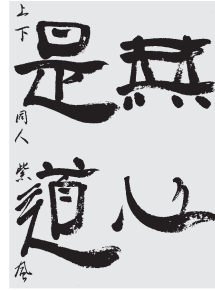 無心
是道
上下同人紫風